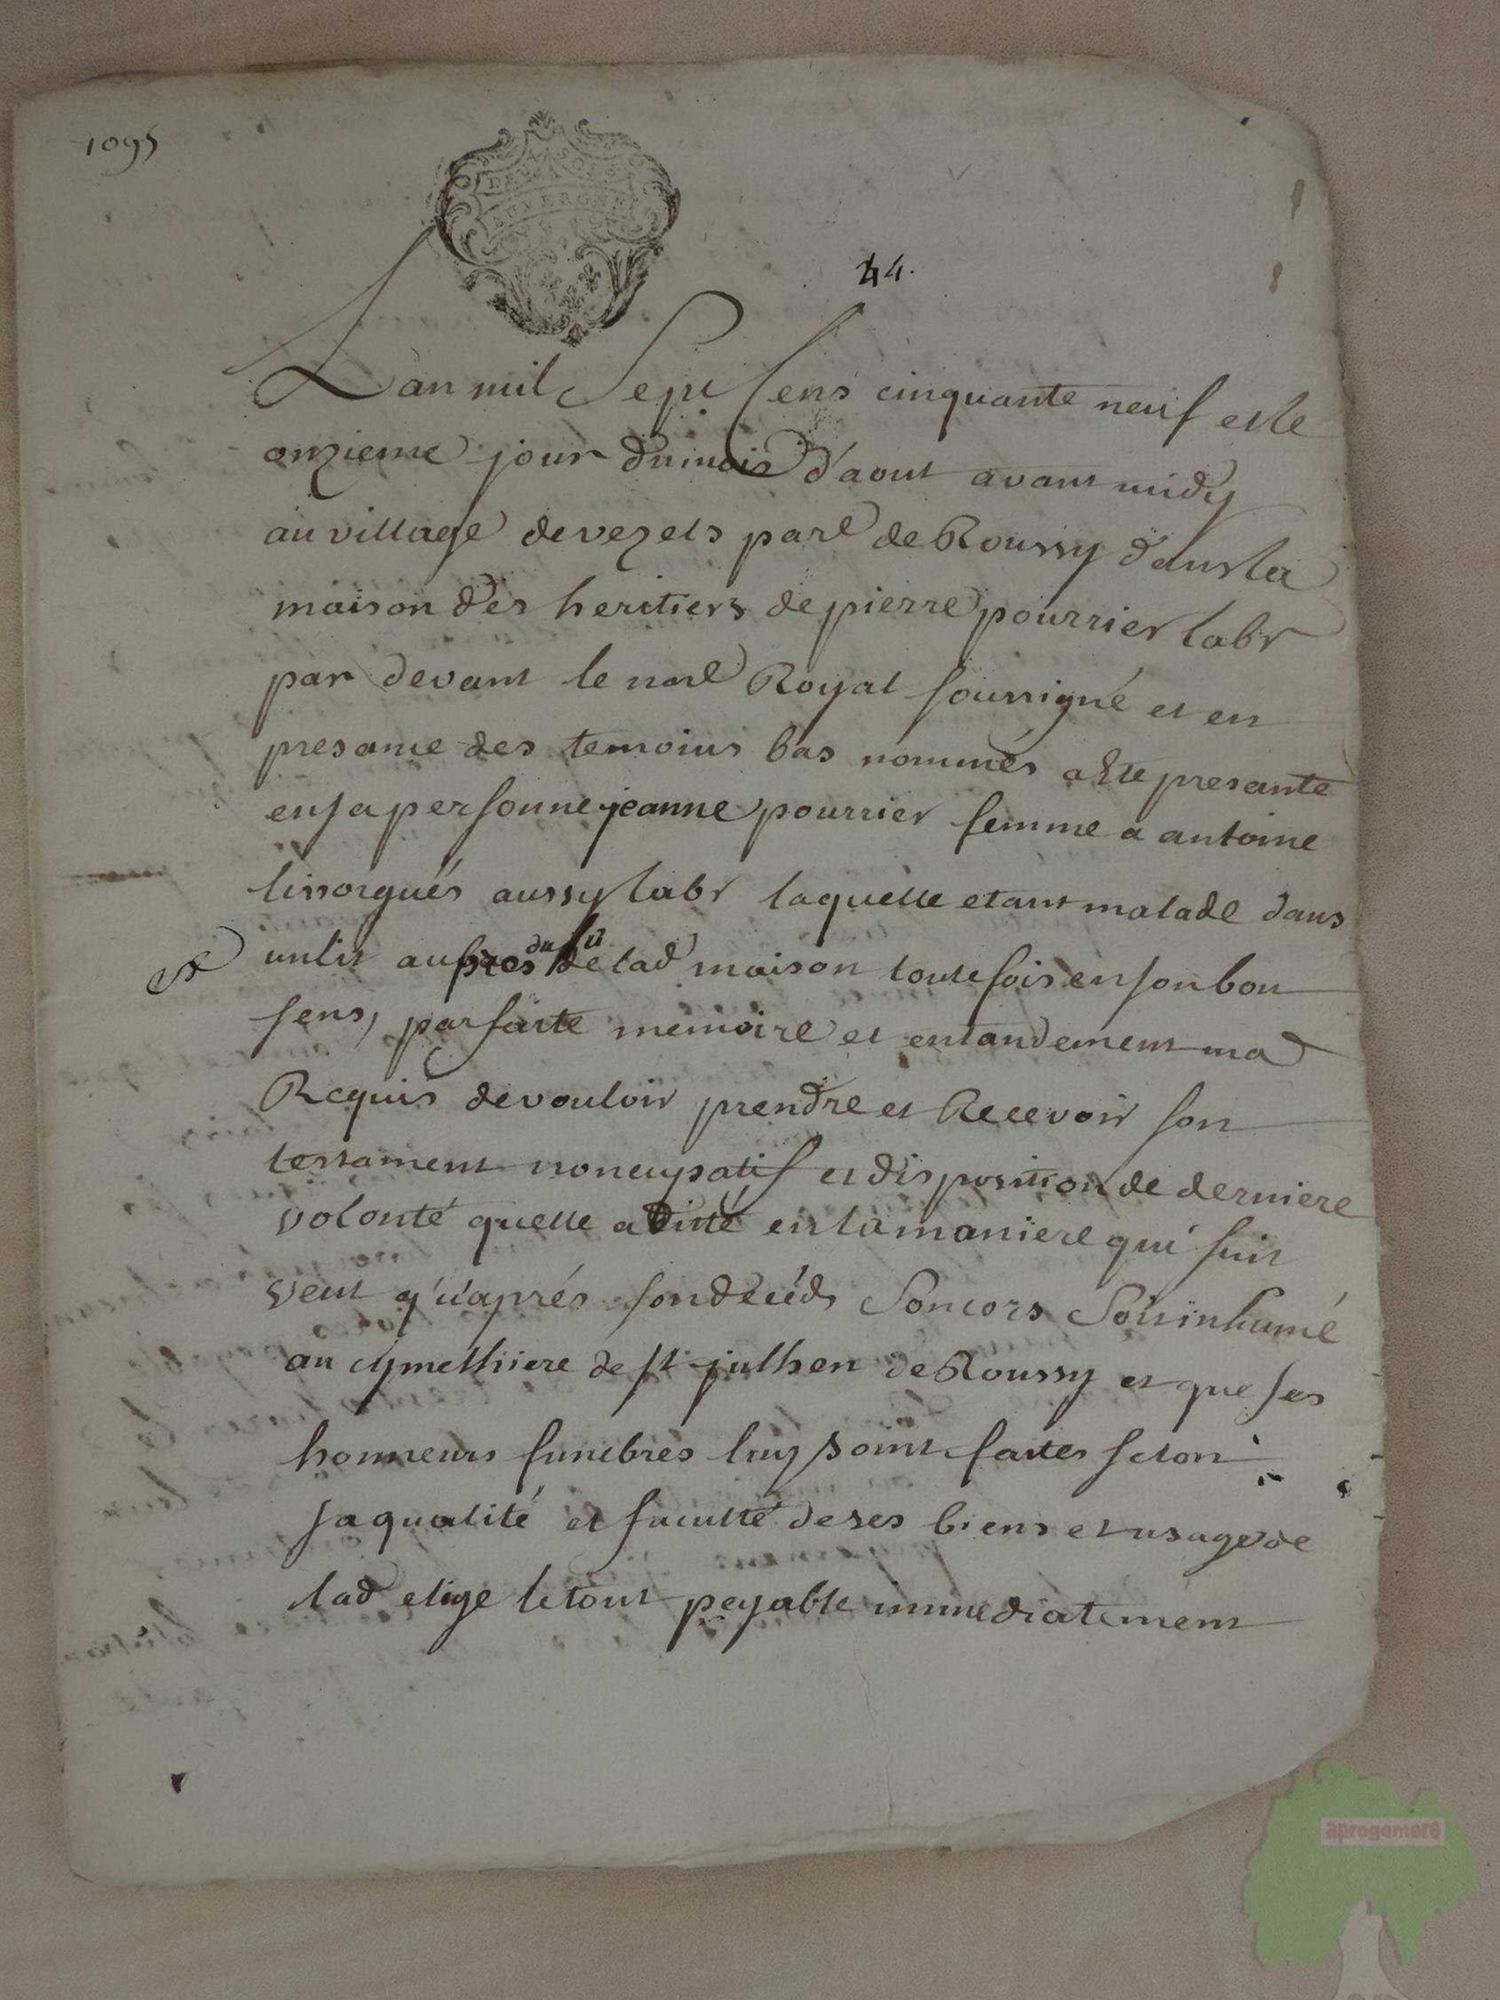 1095
DEUX SOLS
AUVERGNE
44.
L'an mil Sept Cens cinquante neuf et le
onzieme jour du mois d'aout avant midy
au village de vezels parl de Roussy dans la
maison des heritiers de pierre pourrier labr
par devant le norl Royal soussigné et en
presance des temoins bas nommés a été presante
en sa personne jeanne pourrier femme a antoine
lissorgués aussy labr laquelle etant malade dans
un lit aupres du fu de lad maison toutefois en son bon
sens, parfaite memoire et entandement ma
Requis de vouloir prendre et Recevoir son
testament noncupatif et disposition de derniere
volonté quelle a ditté en la maniere qui suit
veut q'uaprés son décéds Son cors Soit inhumé
au cymethiere de st julhen de Roussy et que ses
honneurs funebres luy soint faites selon
sa qualité et faculté de ses biens et usage de
lad eglige le tout payable immediatement
aprogemere